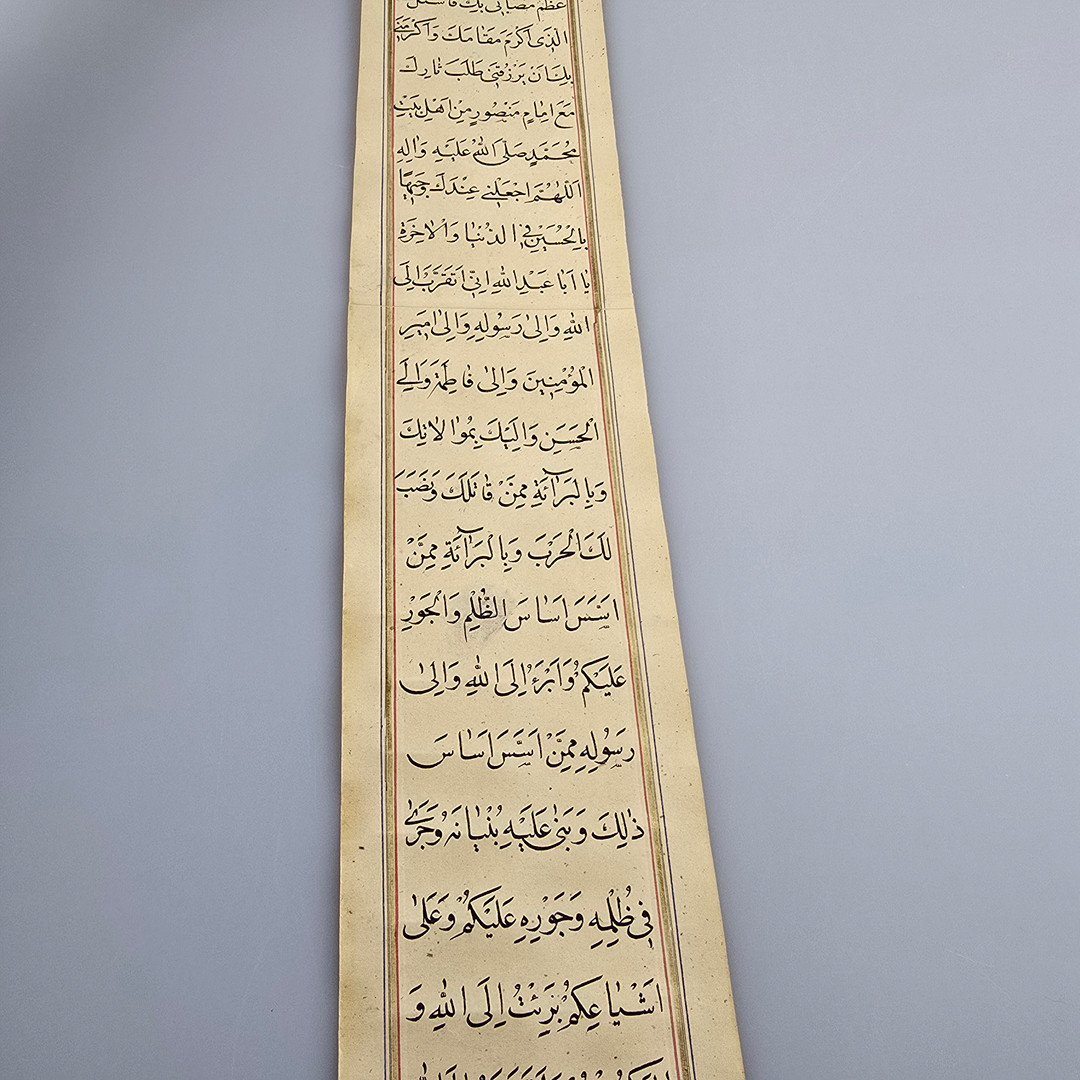 عَظُمَ مُصَابِى بِكَ فَاَسْئَلُ
الَّذِى اَكْرَمَ مَقَامَكَ وَاَكْرَمَنِى
بِكَ اَنْ يَرْزُقَنِى طَلَبَ ثَارِكَ
مَعَ اِمَامٍ مَنْصُورٍ مِنْ اَهْلِ بَيْتِ
مُحَمَّدٍ صَلَّى اللّٰهُ عَلَيْهِ وَاٰلِهِ
اَللّٰهُمَّ اجْعَلْنِى عِنْدَكَ وَجِيهًا
بِالْحُسَيْنِ فِى الدُّنْيَا وَالْاٰخِرَةِ
يَا اَبَا عَبْدِ اللّٰهِ اِنِّى اَتَقَرَّبُ اِلَى
اللّٰهِ وَاِلىٰ رَسُولِهِ وَاِلىٰ اَمِيرِ
الْمُؤْمِنِينَ وَاِلىٰ فَاطِمَةَ وَاِلَى
الْحَسَنِ وَاِلَيْكَ بِمُوَالَاتِكَ
وَبِالْبَرَآئَةِ مِمَّنْ قَاتَلَكَ وَنَصَبَ
لَكَ الْحَرْبَ وَبِالْبَرَآئَةِ مِمَّنْ
اَسَّسَ اَسَاسَ الظُّلْمِ وَالْجَوْرِ
عَلَيْكُمْ وَاَبْرَءُ اِلَى اللّٰهِ وَاِلىٰ
رَسُولِهِ مِمَّنْ اَسَّسَ اَسَاسَ
ذٰلِكَ وَبَنىٰ عَلَيْهِ بُنْيَانَهُ وَجَرىٰ
فِى ظُلْمِهِ وَجَوْرِهِ عَلَيْكُمْ وَعَلىٰ
اَشْيَاعِكُمْ بَرِئْتُ اِلَى اللّٰهِ وَ